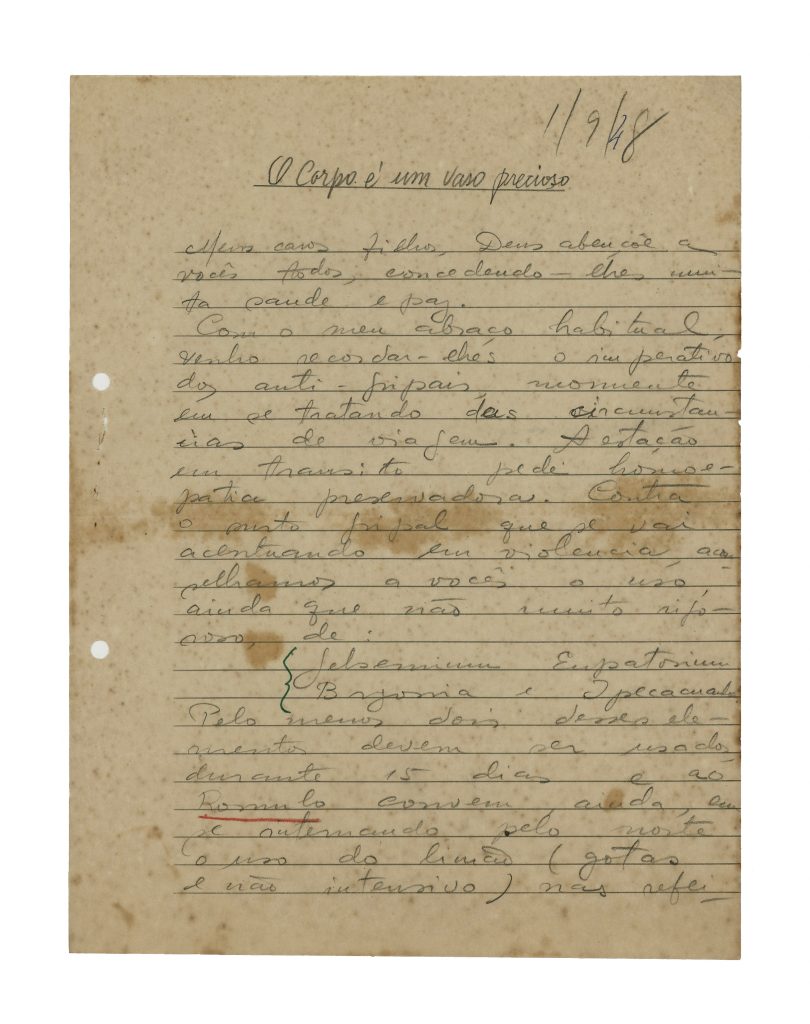 1/9/48
O Corpo é um vaso precioso
Meus caros filhos, Deus abençôe a
vocês todos, concedendo-lhes mui-
ta saude e paz.
Com o meu abraço habitual,
venho recordar-lhes o imperativo
dos anti-gripais, mormente
em se tratando das circunstan-
cias de viagem. A estação
em transito pede homoe-
patia preservadora. Contra
o surto gripal que se vai
acentuando em violencia, acon-
selhamos a vocês o uso,
ainda que não muito rigo-
roso, de:
Gelsemium Eupatorium
Bryonia e Ipecacuanha
Pelo menos dois desses ele-
mentos devem ser usados
durante 15 dias e ao
Romulo convem, ainda, em
se internando pelo norte
o uso do limão (gotas
e não intensivo) nas refei-